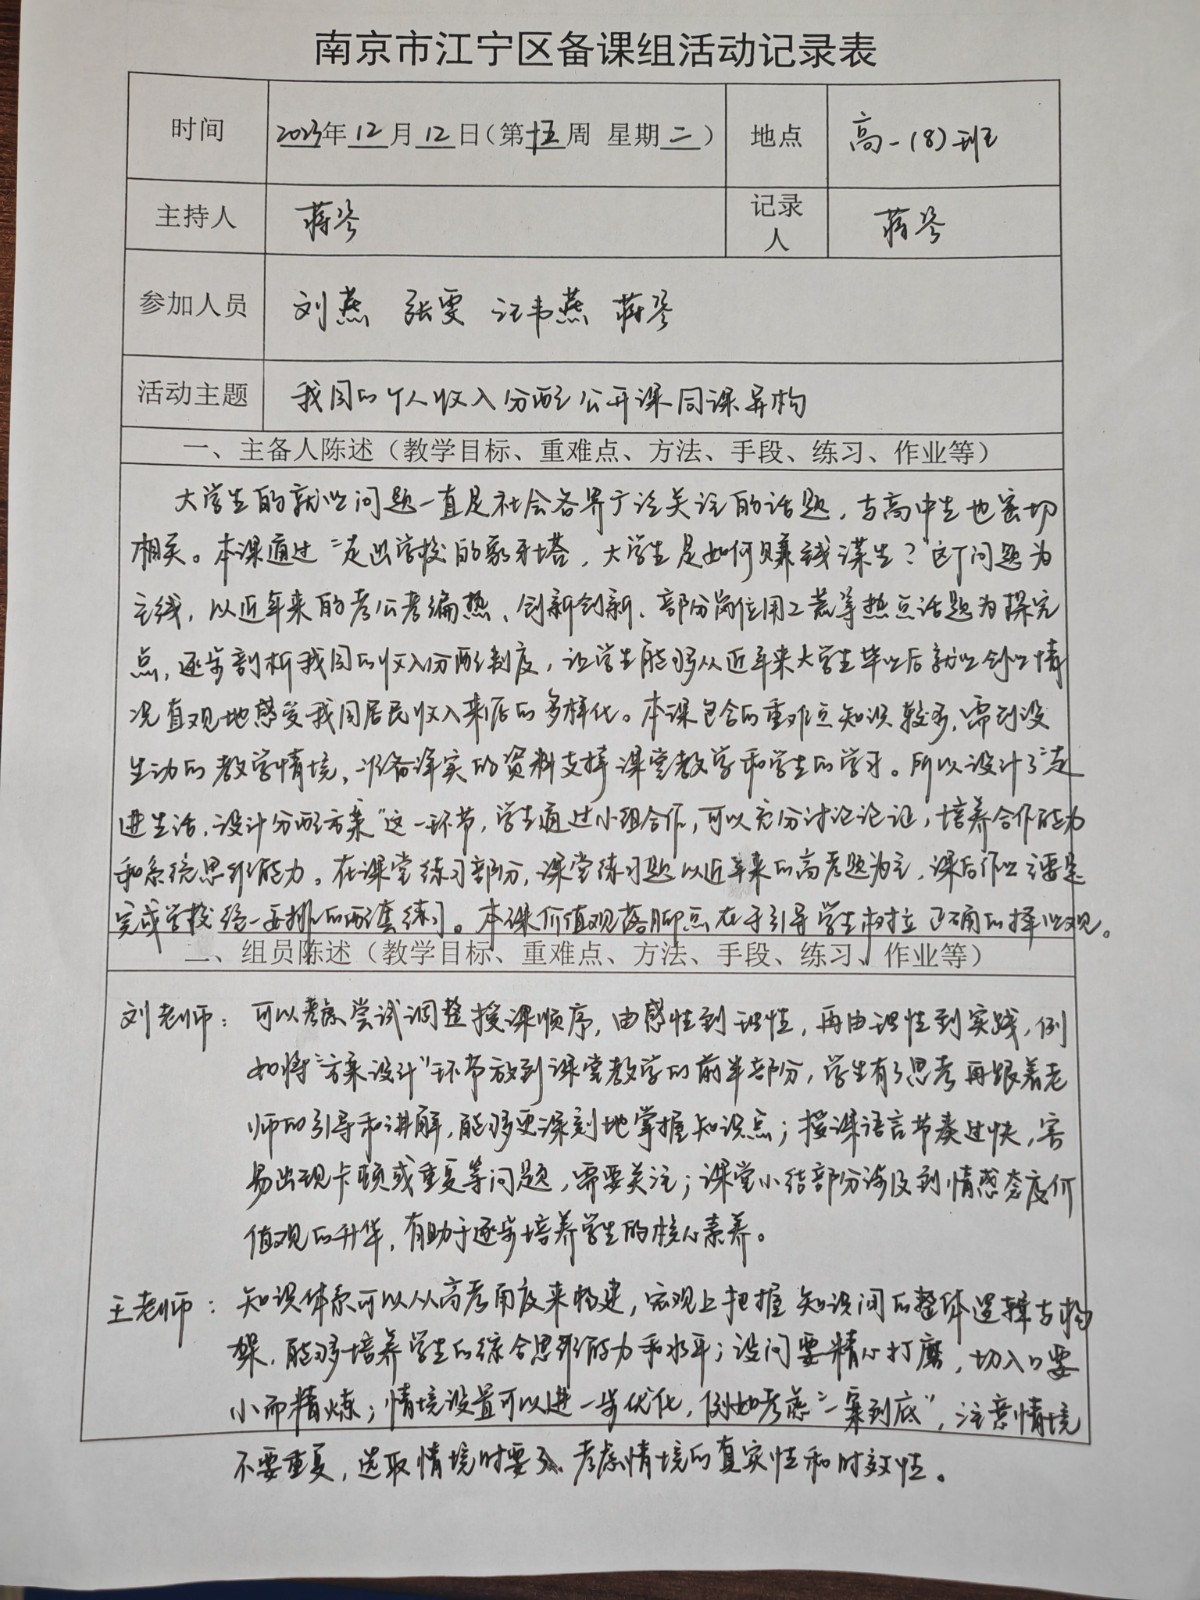 南京市江宁区备课组活动记录表
时间 2023年12月12日（第十五周 星期二） 地点 高一（8）班
主持人 蒋 记录人 蒋
参加人员 刘燕 张雯 汪韦燕 蒋
活动主题 我国的个人收入分配公开课同课异构
一、主备人陈述（教学目标、重难点、方法、手段、练习、作业等）
大学生的就业问题一直是社会各界广泛关注的话题，与高中生也密切
相关。本课通过“走出学校的象牙塔，大学生是如何赚钱谋生？”这个问题为
主线，以近年来的考公考编热、创新创新、部分岗位用工荒等热点话题为探究
点，逐步剖析我国的收入分配制度，让学生能够从近年来大学生毕业后就业创业情
况直观地感受我国居民收入来源的多样化。本课包含的重难点知识较多，需创设
生动的教学情境，准备详实的资料支持课堂教学和学生的学习。所以设计了“走
进生活，设计分配方案”这一环节，学生通过小组合作，可以充分讨论论证，培养合作能力
和系统思维能力。在课堂练习部分，课堂练习题以近年来的高考题为主，课后作业主要是
完成学校统一安排的配套练习。本课价值观落脚点在于引导学生树立正确的择业观。
二、组员陈述（教学目标、重难点、方法、手段、练习、作业等）
刘老师：可以考虑尝试调整授课顺序，由感性到理性，再由理性到实践，例
如将“方案设计”环节放到课堂教学的前半部分，学生有了思考再跟着老
师的引导和讲解，能够更深刻地掌握知识点；授课语言节奏过快，容
易出现卡顿或重复等问题，需要关注；课堂小结部分涉及到情感态度价
值观的升华，有助于逐步培养学生的核心素养。
王老师：知识体系可以从高考角度来构建，宏观上把握知识间的整体逻辑与构
架，能够培养学生的综合思维能力和水平；设问要精心打磨，切入口要
小而精炼；情境设置可以进一步优化，例如考虑“一案到底”，注意情境
不要重复，选取情境时要考虑情境的真实性和时效性。